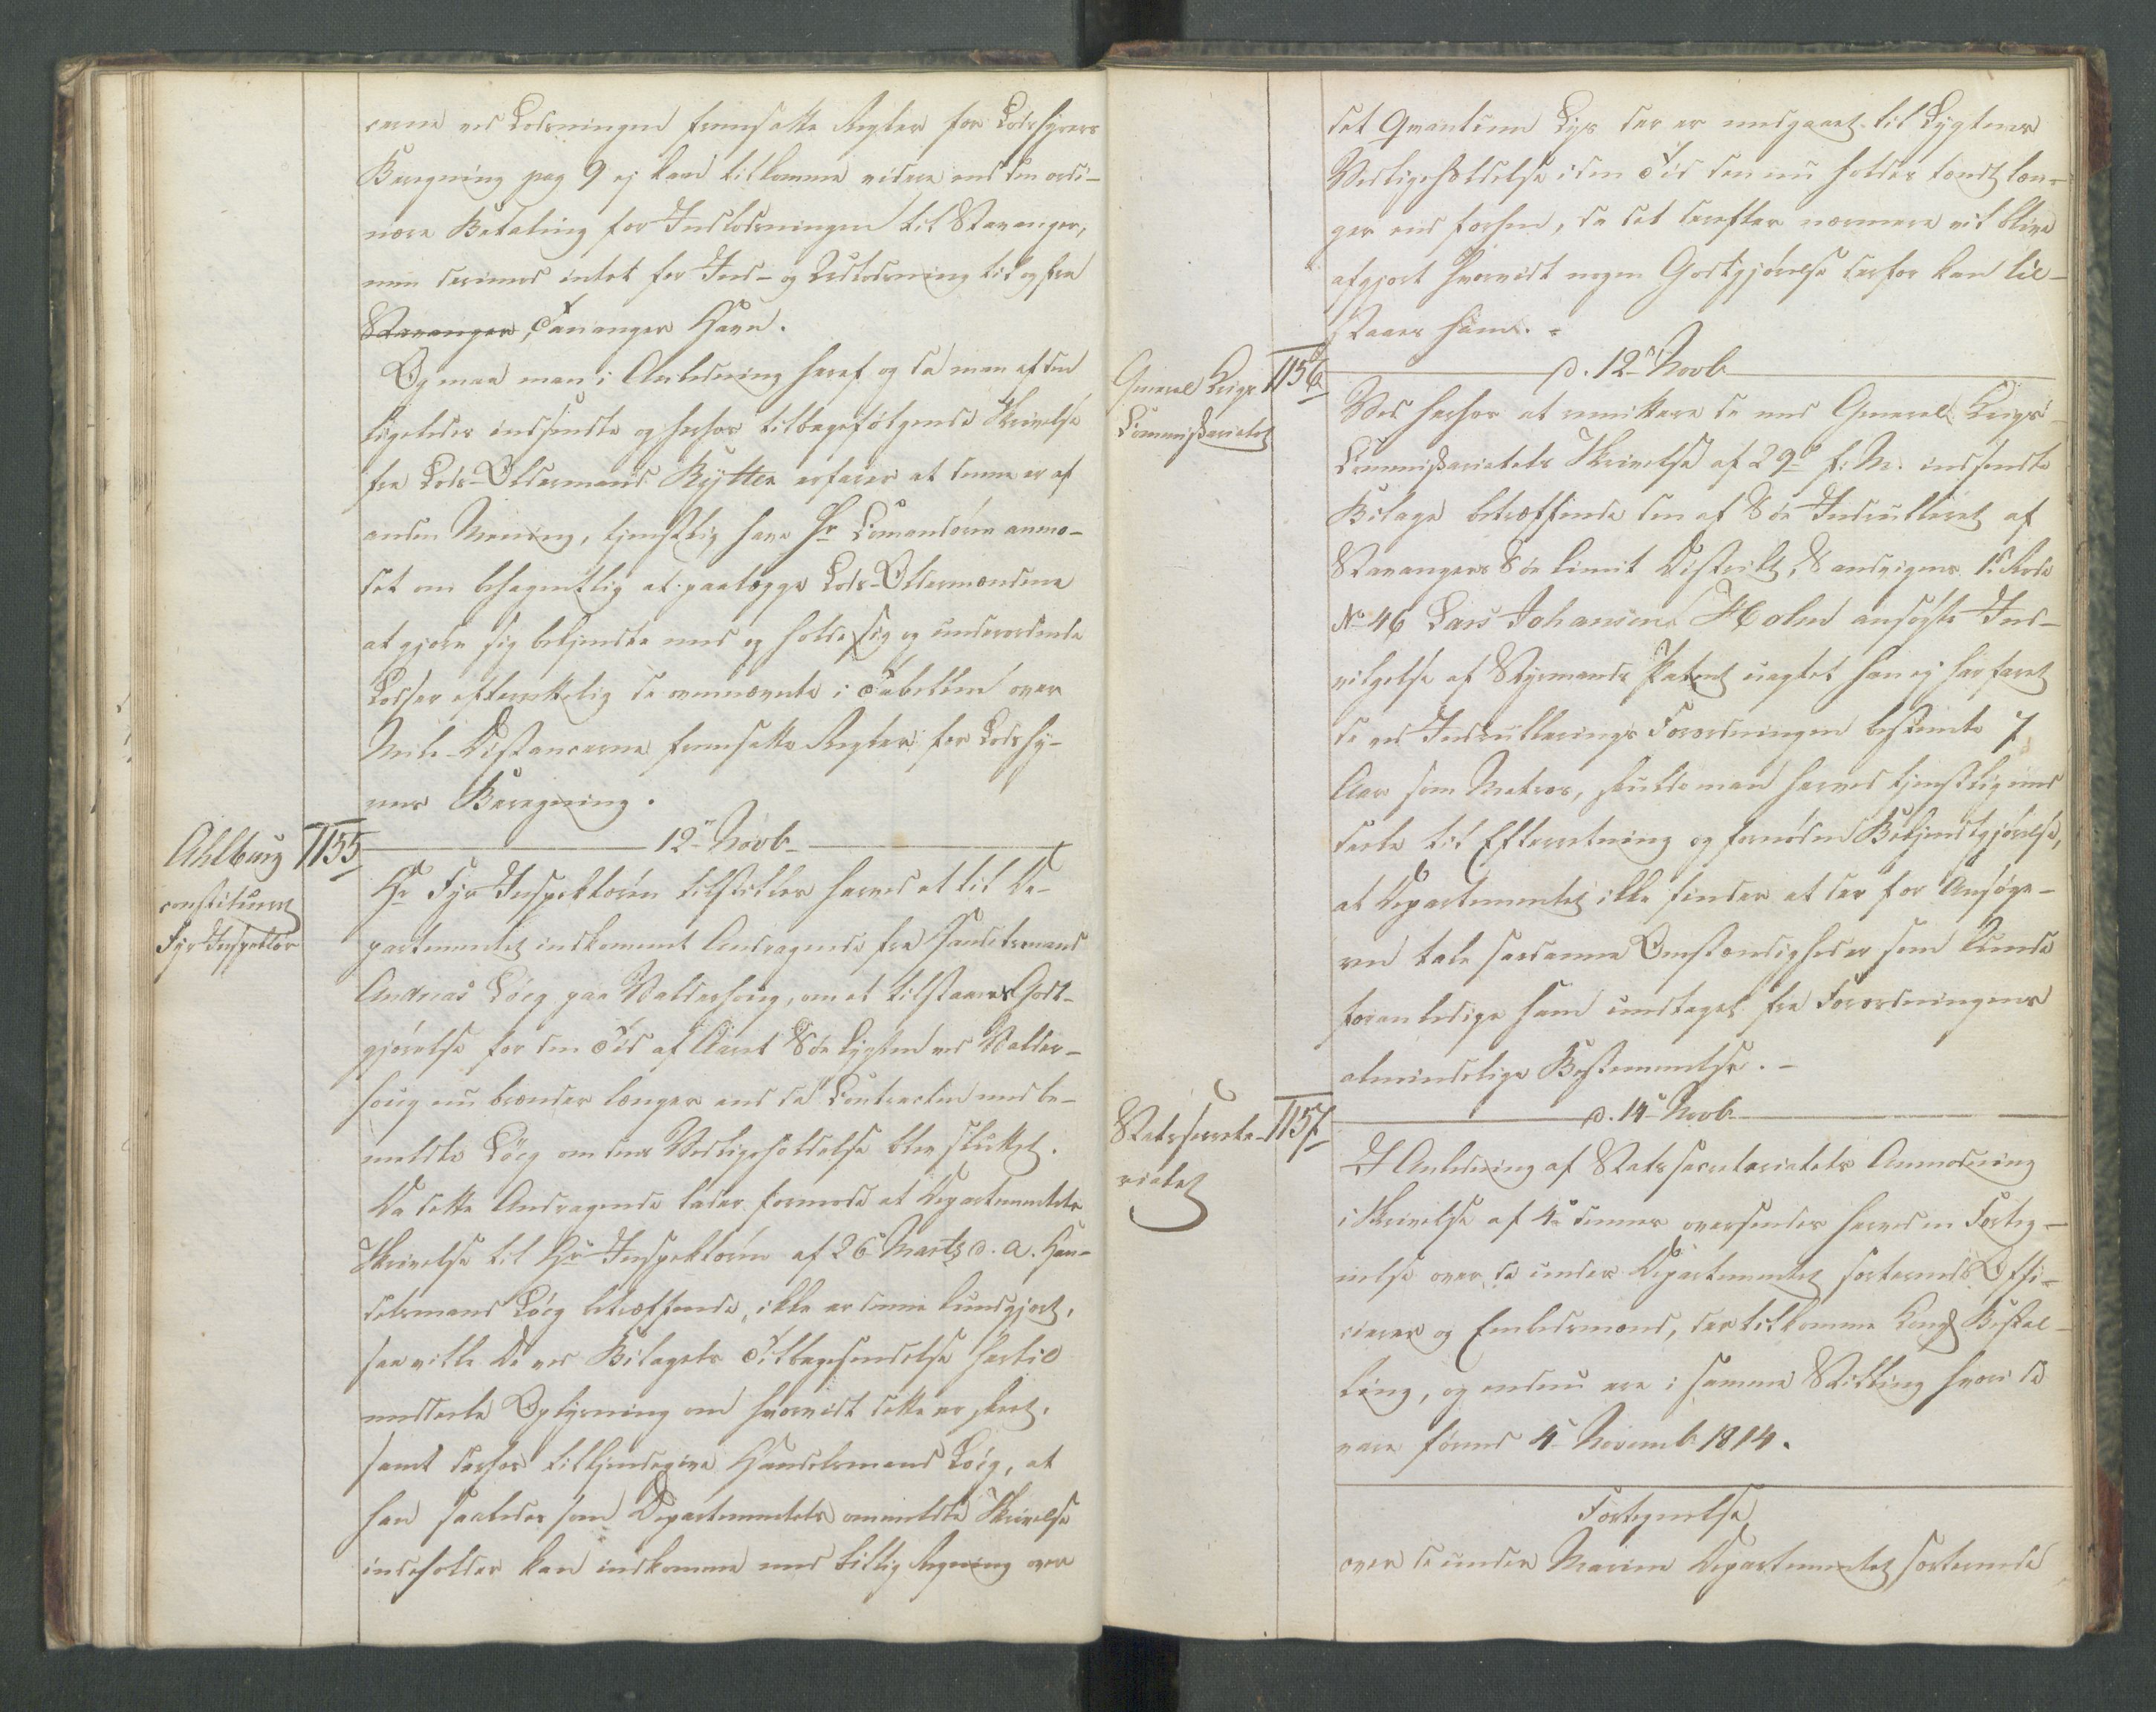 cerne ved Lodsningen fremsatte Regler for Lodshyrers
Beregning pag 9 ej kan tilkomme videre end den ordi-
nære Betaling for Indlodsningen til Stavanger,
men derimod intet for Ind- og Udlodsning til og fra
Stavanger, Tananger Havn.
Og maa man i Anledning heraf og da man af den
ligeledes indsendte og herhos tilbagefølgende Skrivelse
fra Lods-Oldermand Rytter erfarer at denne er af
anden Mening, tjenstlig have Hr Commandøren anmo-
det om behagentlig at paalægge Lods-Oldermændene
at gjøre sig bekjendte med og holde sig og underordnede
Lodser efterrettelig de ovennævnte i Tabellen over
Mile-Distancerne fremsatte Regler for Lodshy-
rens Beregning.
Ahlburg
constitueret
Fyr-Inspektør
1155
12te Novb.
Hr Fyr-Inspektøren tilstilles herved et til De-
partementet indkommet Andragende fra Handelsmand
Andreas Löeg paa Walderhoug, om at tilstaaes Godt-
gjørelse for den Tid af Aaret Söe Lygten ved Walder-
houg nu brænder længer end da Contracten med be-
meldte Löeg om dens Vedligeholdelse blev sluttet.
Da dette Andragende lader formode at Departementets
Skrivelse til Hr Inspektøren af 26 Marts d. A. Han-
delsmand Löeg betræffende, ikke er denne kundgjort,
saa ville De ved Bilagets Tilbagesendelse hertil
meddele Oplysning om hvorvidt dette er skeet,
samt derhos tilkjendegive Handelsmand Löeg, at
han saaledes som Departementets ommeldte Skrivelse
indeholder kan indkomme med billig Regning over
det Qvantum Lys der er medgaaet til Lygtens
Vedligeholdelse i den Tid den nu holdes tændt læn-
ger end forhen, da det derefter nærmere vil blive
afgjort hvorvidt nogen Godtgjørelse derfor kan til-
staaes ham.
General Krigs
Commissariatet
1156
d. 12te Novb.
Ved herhos at remittere de med General-Krigs-
Commissariatets Skrivelse af 29de f. M. indsendte
Bilage betræffende den af Söe Indrulleret af
Stavangers Söe limit District, Sandvigens 1ste Rode
No 46 Lars Johansen Holm ansøgte Ind-
vilgelse af Styrmands Patent uagtet han ej har faret
de ved Indrullerings Forordningen bestemte 7
Aar som Matros, skulde man herved tjenstlig med
dele til Efterretning og fornøden Bekjendtgjørelse,
at Departementet ikke finder at der for Ansøge-
ren tale saadanne Omstændigheder som kunde
foranledige ham undtaget fra Forordningens
almindelige Bestemmelse.
Statssecreta-
riatet
1157
d. 14de Novb.
I Anledning af Statssecretariatets Anmodning
i Skrivelse af 4de dennes oversendes herved en Forteg-
nelse over de under Departementet sorterende Offi-
cierer og Embedsmænd, der tilkomme Kongl Bestal-
ling, og endnu ere i samme Stilling hvori de
vare förend 4de Novemb. 1814.
Fortegnelse
over de under Marine Departementet sorterende